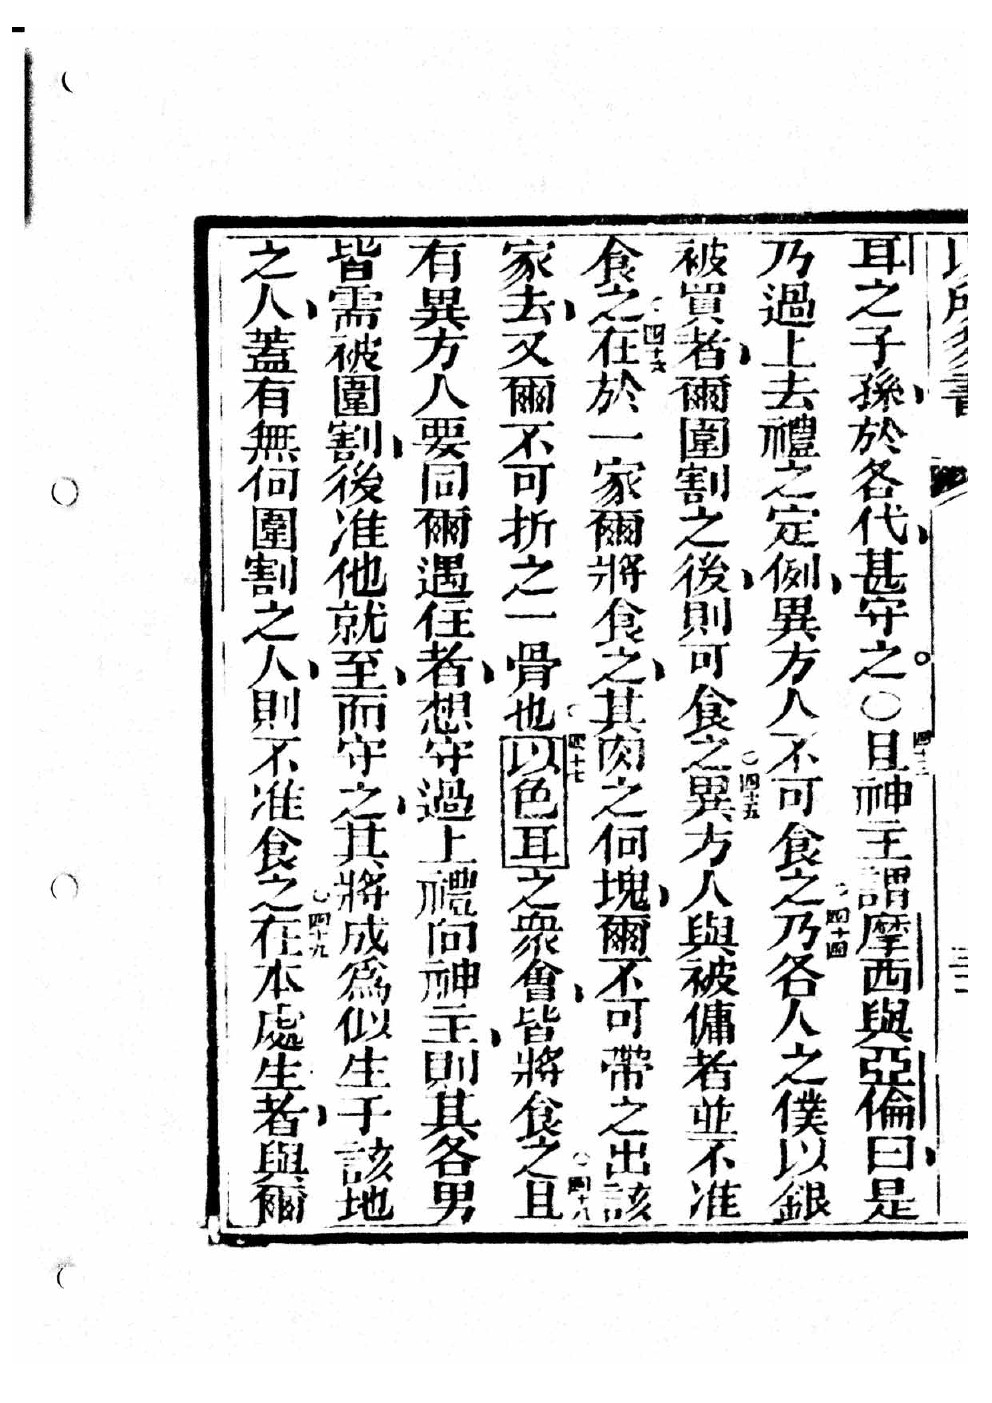 耳之子孫於各代甚守之。○四十三且神主謂摩西與亞倫曰是
乃過上去禮之定例異方人不可食之四十四乃各人之僕以銀
被買者爾圍割之後則可食之四十五異方人與被傭者並不准
食之四十六在於一家爾將食之其肉之何塊爾不可帶之出該
家去又爾不可折之一骨也四十七以色耳之衆會皆將食之四十八且
有異方人要同爾遇住者想守過上禮向神主則其各男
皆需被圍割後准他就至而守之其將成為似生于該地
之人蓋有無何圍割之人則不准食之四十九在本處生者與爾